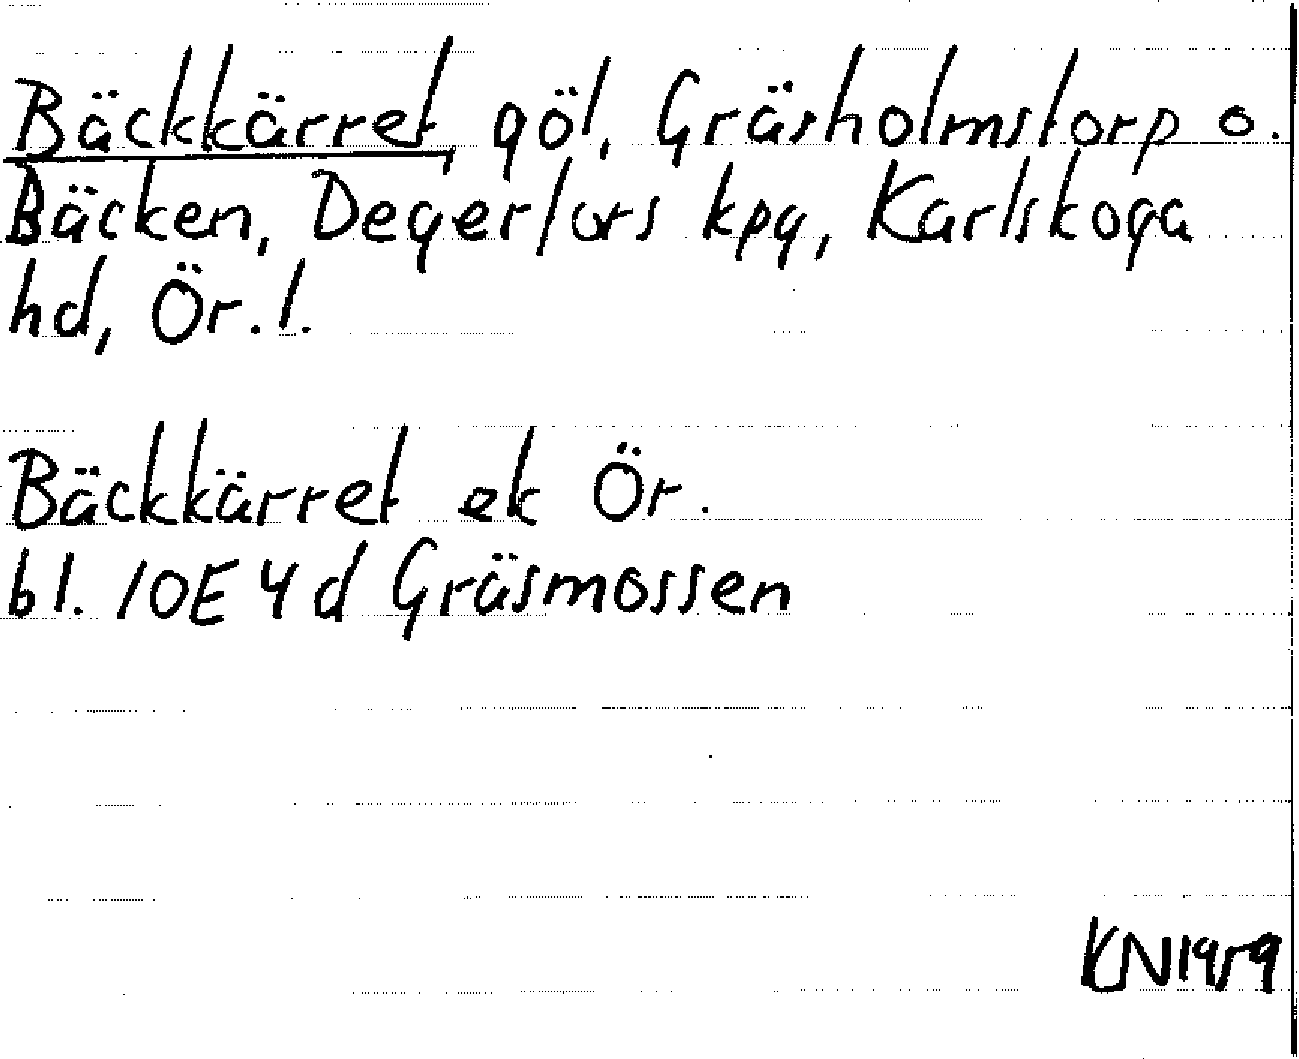 Bäckkärret, göl, Gräsholmstorp o.
Bäcken, Degerfors kpg, Karlskoga
hd, Ör. l.
Bäckkärret ek Ör.
bl. 10E 4d Gräsmossen
KN1959